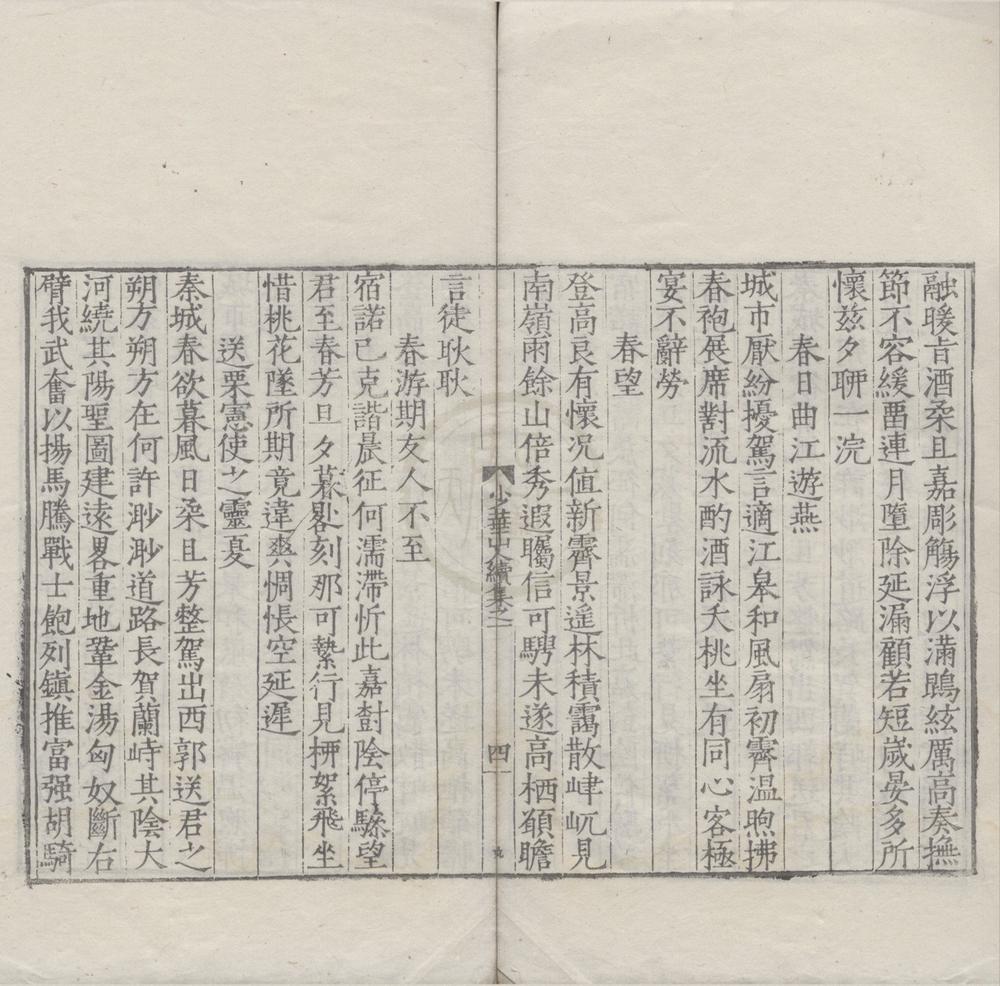 融暖旨酒柔且嘉彫觴浮以滿鵾絃厲高奏撫
節不容緩畱連月墮除延漏顧若短歲晏多所
懷茲夕聊一浣
春日曲江遊燕
城市厭紛擾駕言適江皋和風扇初霽温煦拂
春袍展席對流水酌酒詠夭桃坐有同心客極
宴不辭勞
春望
登高良有懷况值新霽景遥林積靄散峍屼見
南嶺雨餘山倍秀遐矚信可騁未遂高栖願瞻
言徒耿耿
少華山人續集卷之一
四
春游期友人不至
宿諾已克諧晨征何濡滯忻此嘉樹陰停驂望
君至春芳旦夕暮晷刻那可縶行見桺絮飛坐
惜桃花墜所期竟違爽惆悵空延遲
送栗憲使之靈夏
秦城春欲暮風日柔且芳整駕出西郭送君之
朔方朔方在何許渺渺道路長賀蘭峙其陰大
河繞其陽聖圖建遠畧重地鞏金湯匈奴斷右
臂我武奮以揚馬騰戰士飽列鎮推富强胡騎